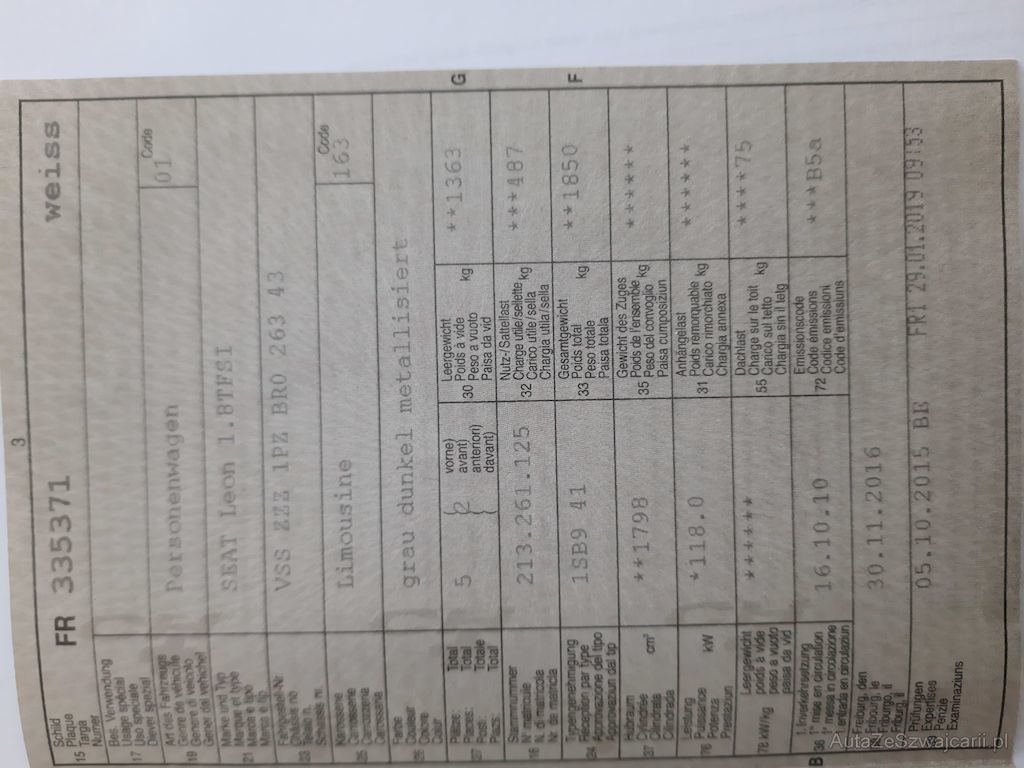 3
15
Schild
Plaque
Targa
Numer
FR 335371
weiss
17
Bes. Verwendung
Usage spécial
Uso speciale
Diever spezial
19
Art des Fahrzeugs
Genre de véhicule
Genere di veicolo
Gener dal vehichel
Personenwagen
Code
01
21
Marke und Typ
Marque et type
Marca e tipo
Marca e tip
SEAT Leon 1.8TFSI
23
VSS ZZZ 1PZ BR0 263 43
25
Karosserie
Carrosserie
Carrozzeria
Carossaria
Limousine
Code
163
26
Farbe
Couleur
Colore
Colur
grau dunkel metallisiert
27
Plätze:
Places:
Posti:
Plazs:
Total
Total
Totale
Total
5
2
vorne)
avant)
anteriori)
davant)
30
Leergewicht
Poids à vide
Peso a vuoto
Paisa da vid
kg
**1363
G
18
Stammnummer
N° matricule
N. di matricola
Nr. da matricla
213.261.125
32
Nutz-/Sattellast
Charge utile/sellette
Carico utile/sella
Chargia utila/sella
kg
***487
24
Typengenehmigung
Réception par type
Approvazione del tipo
Approvaziun dal tip
1SB9 41
33
Gesamtgewicht
Poids total
Peso totale
Paisa totala
kg
**1850
F
37
Hubraum
Cylindrée
Cilindrata
Cilindrada
cm³
**1798
35
Gewicht des Zuges
Poids de l'ensemble
Peso del convoglio
Paisa cumposiziun
kg
*******
76
Leistung
Puissance
Potenza
Prestaziun
kW
*118.0
31
Anhängelast
Poids remorquable
Carico rimorchiato
Chargia annexa
kg
*******
78 kW/kg
Leergewicht
poids à vide
peso a vuoto
paisa da vid
*******
55
Dachlast
Charge sur le toit
Carico sul tetto
Chargia sin il tetg
kg
*****75
B 36
1. Inverkehrsetzung
1re mise en circulation
1a messa in circolazione
entrada en circulaziun
16.10.10
72
Emissionscode
Code émissions
Codice emissioni
Code d'emissiuns
***B5a
Freiburg, den
Fribourg, le
Friburgo, il
Friburg, il
30.11.2016
39
Prüfungen
Expertises
Perizie
Examinaziuns
05.10.2015 BE
FRI 29.01.2019 09:53
AutaZeSzwajcarii.pl